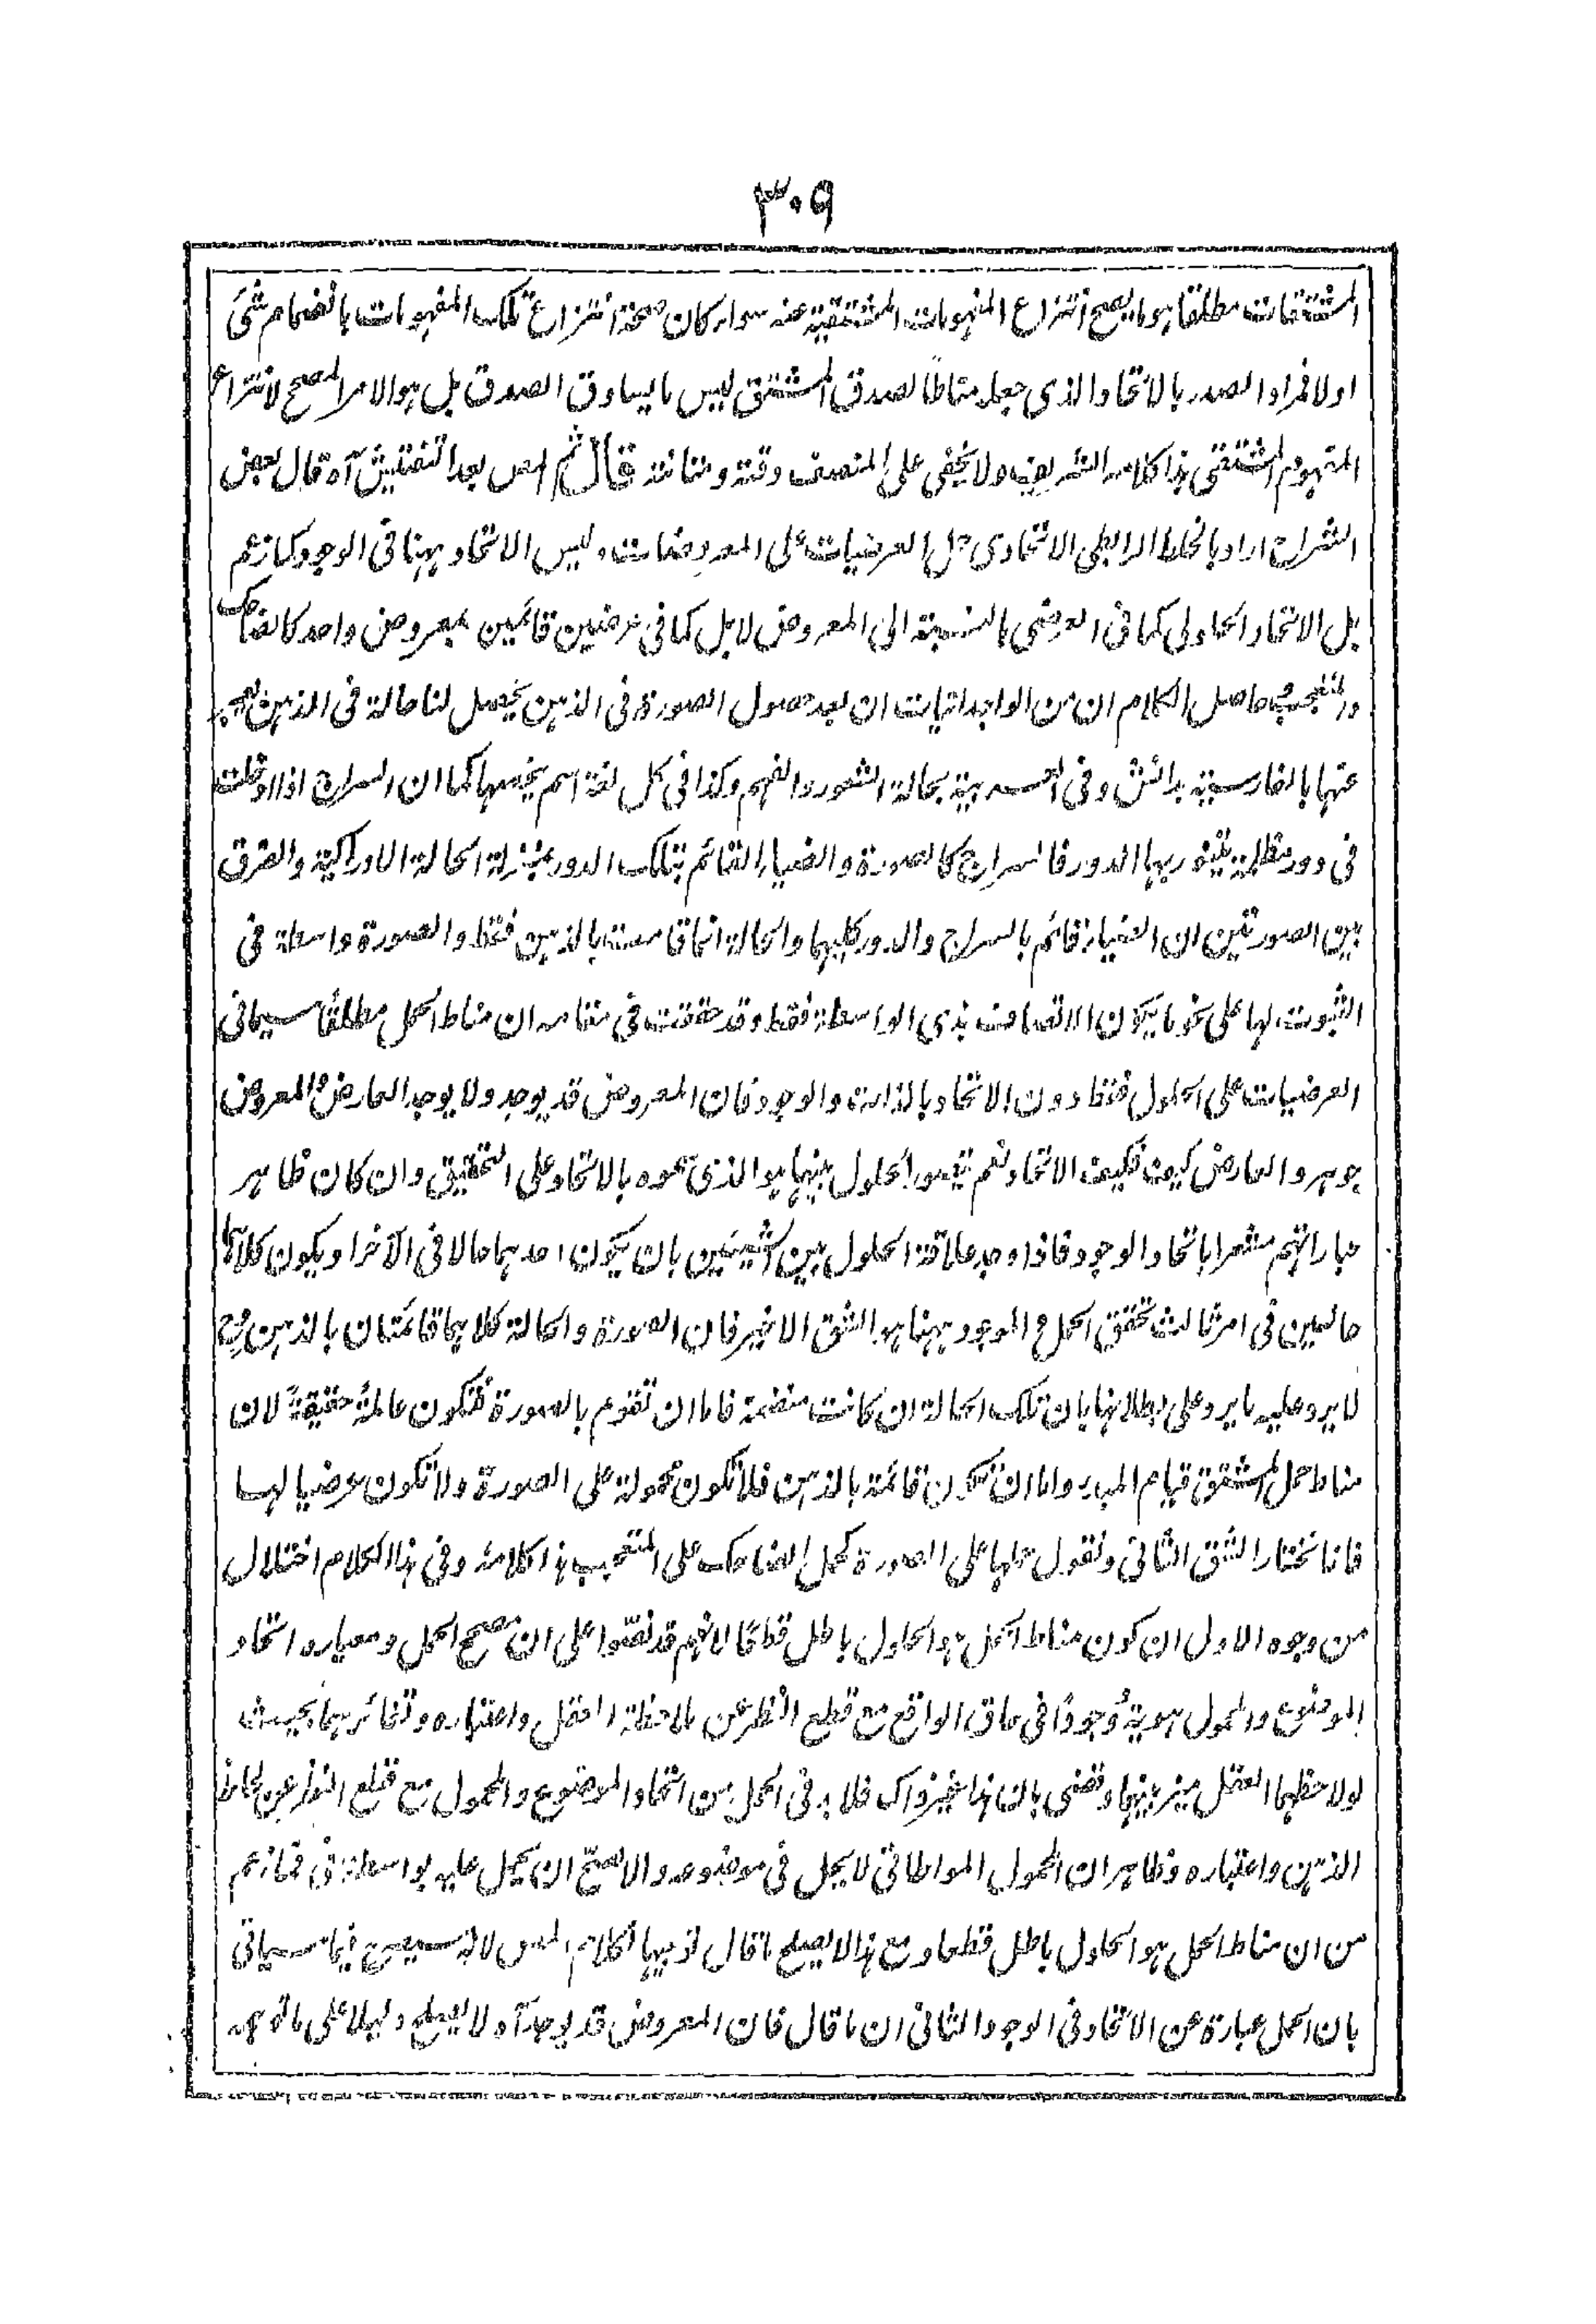 ٣٠٩
المشتقات مطلقا هو ما يصح انتزاع المفهومات المشتقية عنه سواء كان صحة انتزاع تلك المفهومات بانضمام شئ
اولا فمراد الصدر بالاتحاد الذى جعله مناطًا لصدق المشتق ليس ما يساوق الصدق بل هو الامر المصحح لانتزاع
المفهوم المشتقى هذا كلامه الشريف ولا يخفى على المنصف دقته ومتانته قال ثم المص بعد التفتيش آه قال بعض
الشراح اراد بالخلط الرابطى الاتحادى حمل العرضيات على المعروضات وليس الاتحاد ههنا فى الوجود كما زعم
بل الاتحاد الحلولى كما فى العرضى بالنسبة الى المعروض لا بل كما فى عرضين قائمين بمعروض واحد كالضاحك
والمتعجب حاصل الكلام ان من الوجدانيات ان بعد حصول الصورة فى الذهن يحصل لنا حالة فى الذهن يعبر
عنها بالفارسية بدانش وفى العربية بحالة الشعور والفهم وكذا فى كل لغة اسم يخصها كما ان السراج اذا ادخلت
فى دور مظلمة يتنور بها الدور فالسراج كالصورة والضياء القائم بتلك الدور بمنزلة الحالة الادراكية والفرق
بين الصورتين ان الضياء قائم بالسراج والدور كليهما والحالة انما قامت بالذهن فقط والصورة واسطة فى
الثبوت لها على نحو ما يكون الاتصاف بذى الواسطة فقط وقد حققت فى مقامه ان مناط الحمل مطلقًا سيما فى
العرضيات على الحلول فقط دون الاتحاد بالذات والوجود فان المعروض قد يوجد ولا يوجد العارض والمعروض
جوهر والعارض كيف فكيف الاتحاد نعم يتصور الحلول بينهما هو الذى سموه بالاتحاد على التحقيق وان كان ظاهر
عباراتهم مشعرا باتحاد الوجود فاذا وجد علاقة الحلول بين الشيئين بان يكون احدهما حالا فى الآخر او يكون كلاهما
حالين فى امر ثالث تحقق الحمل والموجود ههنا هو الشق الاخير فان الصورة والحالة كلاهما قائمتان بالذهن وح
لا يرد عليه ما يرد على بطلانها بان تلك الحالة ان كانت منضمة فاما ان تقوم بالصورة فتكون عالمةً حقيقةً لان
مناط حمل المشتق قيام المبدء واما ان تكون قائمة بالذهن فلا تكون محمولة على الصورة ولا تكون عرضيا لها
فانا نختار الشق الثانى ونقول حملها على الصورة كحمل الضاحك على المتعجب هذا كلامه وفى هذا الكلام اختلال
من وجوه الاول ان كون مناط الحمل هو الحلول باطل قطعًا لانهم قد نصّوا على ان مصحح الحمل ومعياره اتحاد
الموضوع والمحمول هويةً ووجودًا فى حاق الواقع مع قطع النظر عن ملاحظة العقل واعتباره وتغائرهما بحيث
لو لاحظهما العقل ميز بينهما وقضى بان هذا غير ذاك فلا بد فى الحمل من اتحاد الموضوع والمحمول مع قطع النظر عن لحاظ
الذهن واعتباره وظاهر ان المحمول المواطاتى لا يحل فى موضوعه والا لصح ان يحمل عليه بواسطة فى فما زعم
من ان مناط الحمل هو الحلول باطل قطعا ومع هذا لا يصلح ما قال توجيها لكلام المص لانه سيصرح فيما سيأتى
بان الحمل عبارة عن الاتحاد فى الوجود الثانى ان ما قال فان المعروض قد يوجد آه لا يصلح دليلا على ما توهمه